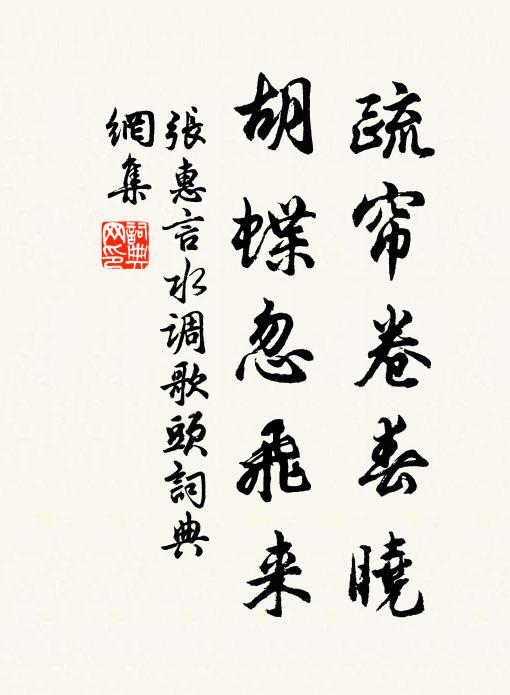 疏帘卷春曉
胡蝶忽飛来
張惠言水调歌頭詞典
網集
詞典网印